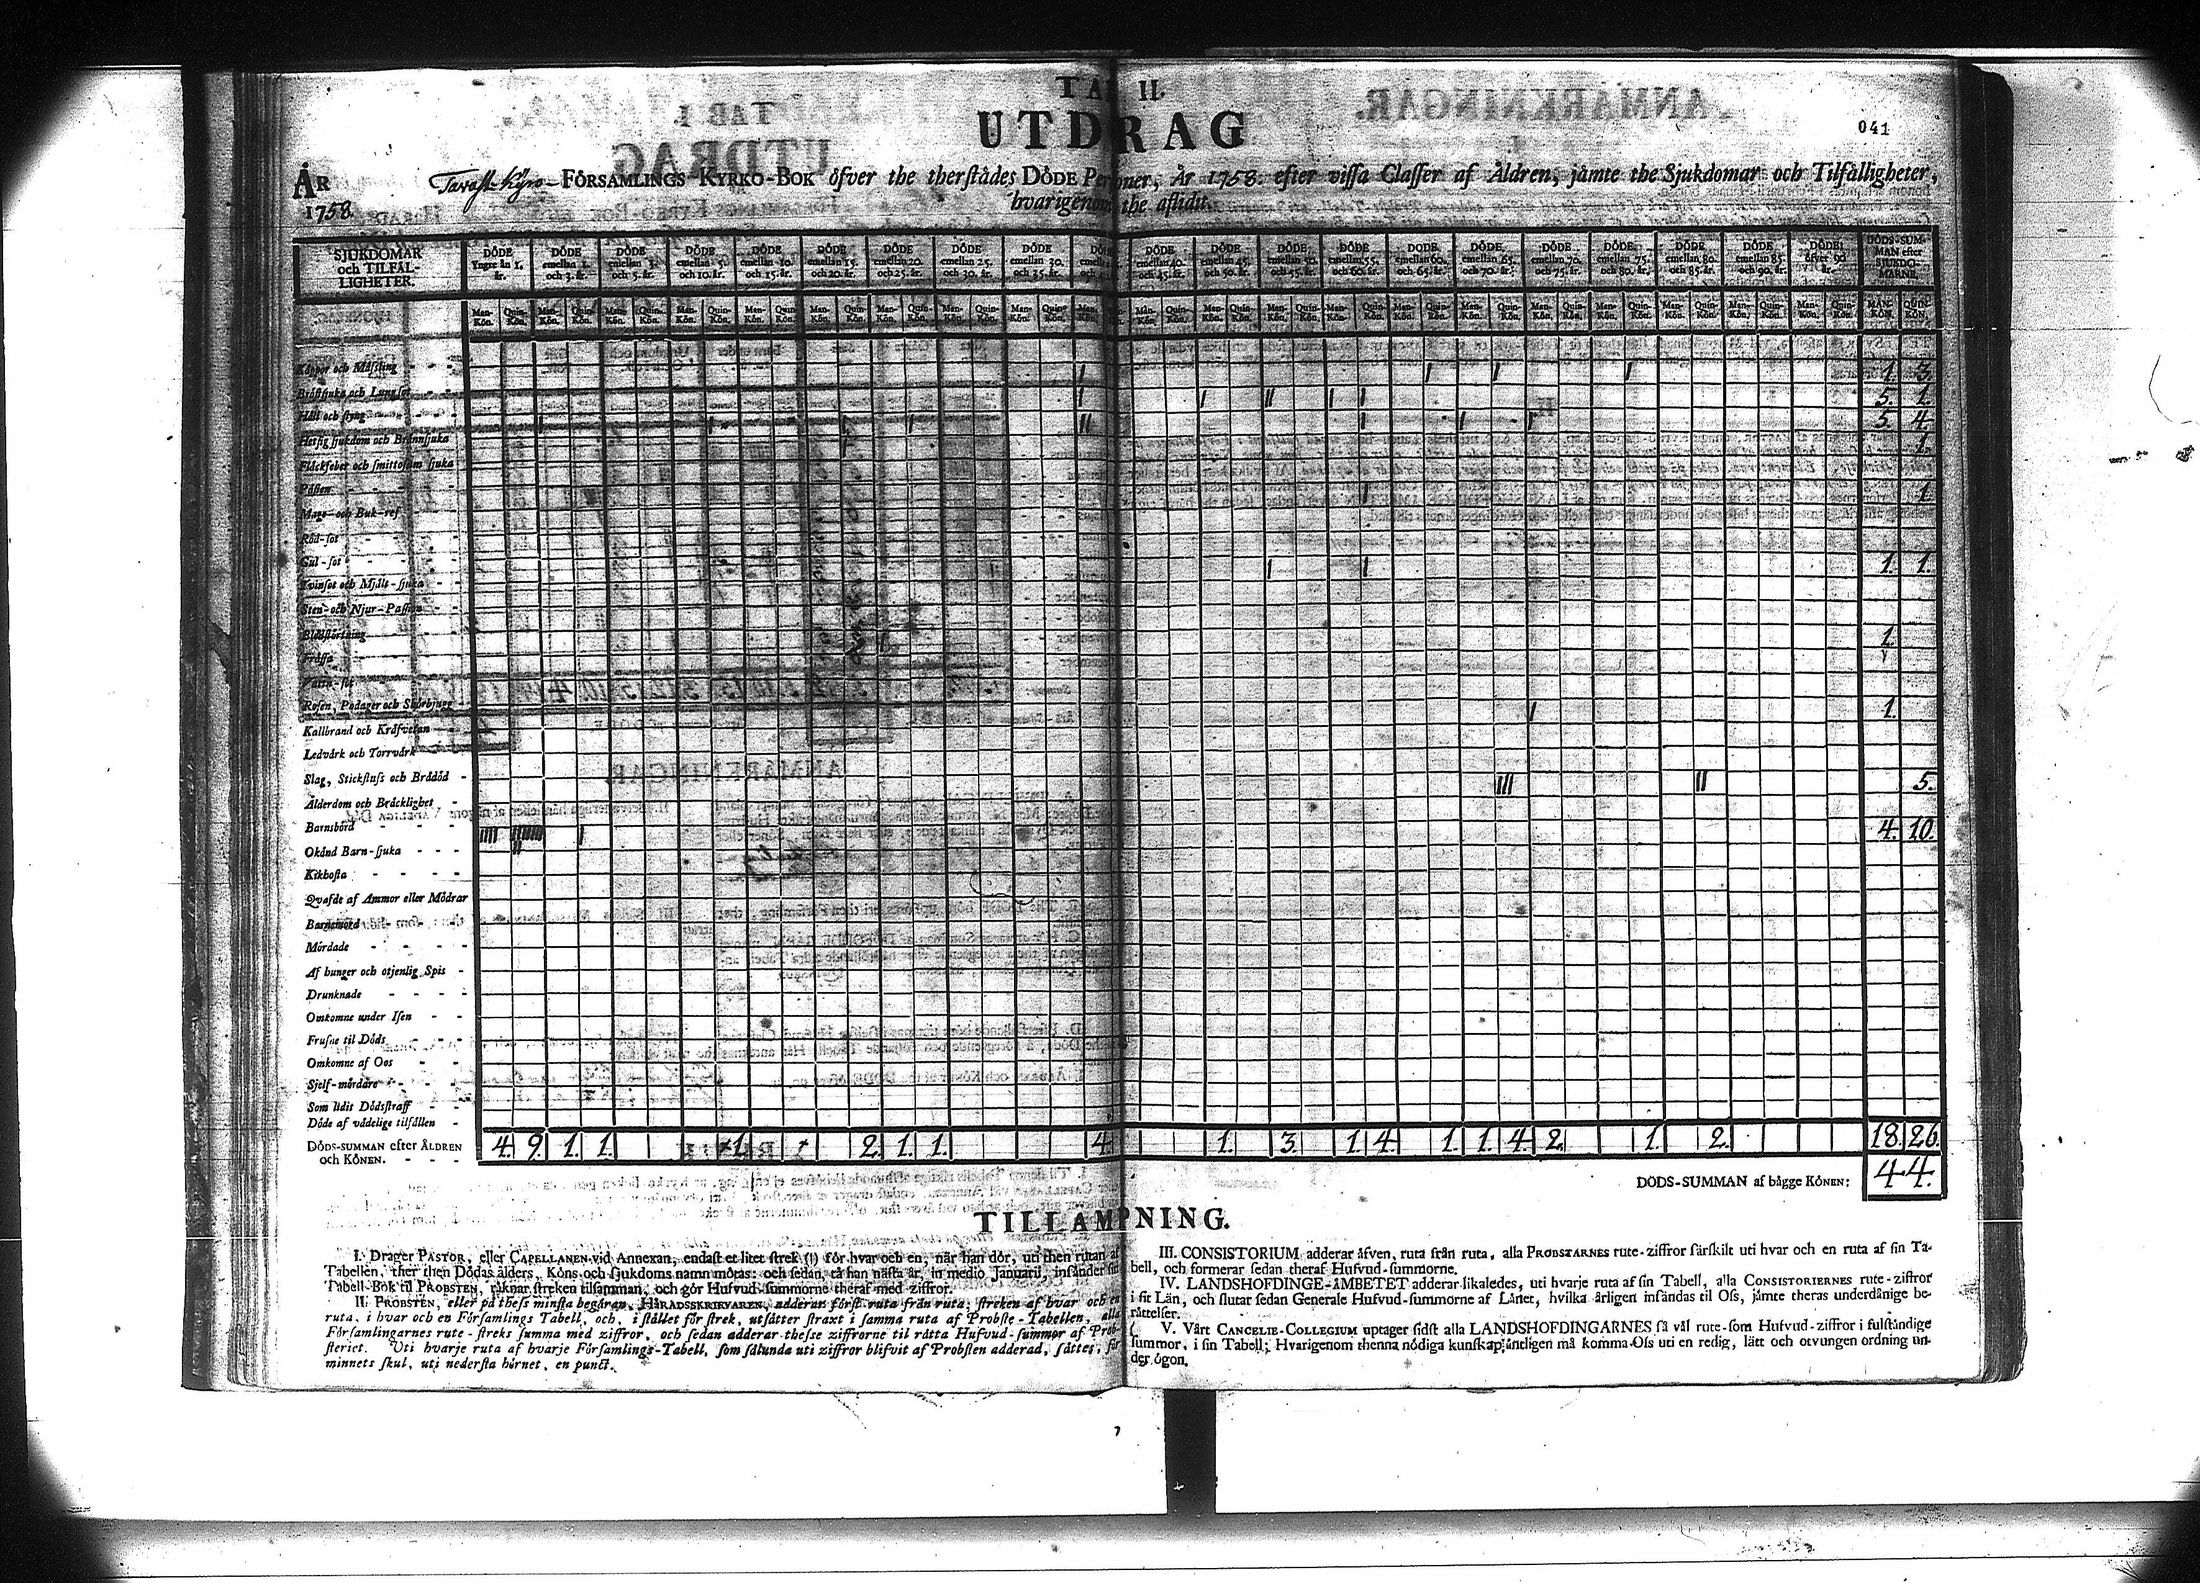 TAB II.
UTDRAG
041
ÅR
1758.
Tavast-Kyro FÖRSAMLINGS KYRKO-BOK öfver the therstådes DÖDE Personer, År 1758. efter vissa Classer af Åldren, jämte the Sjukdomar och Tilfälligheter,
hvarigenom the aflidit.
SJUKDOMAR och TILFÄL-LIGHETER.
DÖDE Yngre än 1. år.
DÖDE emellan 1. och 3. år.
DÖDE emellan 3. och 5. år.
DÖDE emellan 5. och 10. år.
DÖDE emellan 10. och 15. år.
DÖDE emellan 15. och 20. år.
DÖDE emellan 20. och 25. år.
DÖDE emellan 25. och 30. år.
DÖDE emellan 30. och 35. år.
DÖDE emellan
DÖDE emellan 40. och 45. år.
DÖDE emellan 45. och 50. år.
DÖDE emellan 50. och 55. år.
DÖDE emellan 55. och 60. år.
DÖDE emellan 60. och 65. år.
DÖDE emellan 65. och 70. år.
DÖDE emellan 70. och 75. år.
DÖDE emellan 75. och 80. år.
DÖDE emellan 80. och 85. år.
DÖDE emellan 85. och 90. år.
DÖDE öfver 90 år.
DÖDS-SUMMAN efter SJUKDOMARNE.
Man-Kön. Quin-Kön. Man-Kön. Quin-Kön. Man-Kön. Quin-Kön. Man-Kön. Quin-Kön. Man-Kön. Quin-Kön. Man-Kön. Quin-Kön. Man-Kön. Quin-Kön. Man-Kön. Quin-Kön. Man-Kön. Quin-Kön. Man-Kön. Quin-Kön. Man-Kön. Quin-Kön. Man-Kön. Quin-Kön. Man-Kön. Quin-Kön. Man-Kön. Quin-Kön. Man-Kön. Quin-Kön. Man-Kön. Quin-Kön. Man-Kön. Quin-Kön. Man-Kön. Quin-Kön. Man-Kön. Quin-Kön. MAN-KÖN. QUIN-KÖN.
Koppor och Mässling
Bröstsjuka och Lungsot 1. 3.
Håll och styng 5. 1.
Hetsig sjukdom och Brännsjuka 5. 4.
Fläckfeber och smittosam sjuka 1.
Påsten
Mage- och Buk-ref 1.
Röd-sot
Gul-sot
Tvinsot och Mjält-sjuka 1. 1.
Sten- och Njur-Passion
Blodstörtning
Fråssa 1.
Vattu-sot
Rosen, Podager och Skörbjugg 1.
Kallbrand och Kräfvetan
Ledvärk och Torrvärk
Slag, Stickfluss och Brådöd
Ålderdom och Bräcklighet 5.
Barnsbörd
Okänd Barn-sjuka 4. 10.
Kikhosta
Qvafde af Ammor eller Mödrar
Barnemörd
Mördade
Af hunger och otjenlig Spis
Drunknade
Omkomne under Isen
Frusne til Döds
Omkomne af Oos
Sjelf-mördare
Som lidit Dödsstraff
Döde af vådelige tilfällen
DÖDS-SUMMAN efter ÅLDREN och KÖNEN. 4. 9. 1. 1. 1. 2. 1. 1. 4. 1. 3. 1. 4. 1. 1. 4. 2. 1. 2. 18. 26.
DÖDS-SUMMAN af bägge KÖNEN: 44.
TILLÄMPNING.
I. Drager PASTOR, eller CAPELLANEN vid Annexan, endast et litet strek (|) för hvar och en, när han dör, uti then rutan af
Tabellen, ther then Dödas ålders, Köns och sjukdoms namn mötas: och sedan, tå han nästa år, in medio Januarii, insänder sin
Tabell-Bok til PROBSTEN, räknar streken tilsamman, och gör Hufvud-summorne theraf med ziffror.
II. PROBSTEN, eller på thess minsta begäran, HÄRADSSKRIFVAREN, adderar först ruta från ruta; streken af hvar och en
ruta, i hvar och en Församlings Tabell, och, i stället för strek, utsätter straxt i samma ruta af Probste-Tabellen, alla
Församlingarnes rute-streks summa med ziffror, och sedan adderar thesse ziffrorne til rätta Hufvud-summor af Prob-
steriet. Uti hvarje ruta af hvarje Församlings-Tabell, som sålunda uti ziffror blifvit af Probsten adderad, sättes, för
minnets skul, uti nedersta hörnet, en punct.
III. CONSISTORIUM adderar äfven, ruta från ruta, alla PROBSTARNES rute-ziffror särskilt uti hvar och en ruta af sin Ta-
bell, och formerar sedan theraf Hufvud-summorne.
IV. LANDSHOFDINGE-ÄMBETET adderar likaledes, uti hvarje ruta af sin Tabell, alla CONSISTORIERNES rute-ziffror
i sit Län, och slutar sedan Generale Hufvud-summorne af Länet, hvilka årligen insändas til Oss, jämte theras underdånige be-
rättelser.
V. Vårt CANCELIE-COLLEGIUM uptager sidst alla LANDSHOFDINGARNES så väl rute- som Hufvud-ziffror i fulständige
summor, i sin Tabell; Hvarigenom thenna nödiga kunskap äntligen må komma Oss uti en redig, lätt och otvungen ordning un-
der ögon.